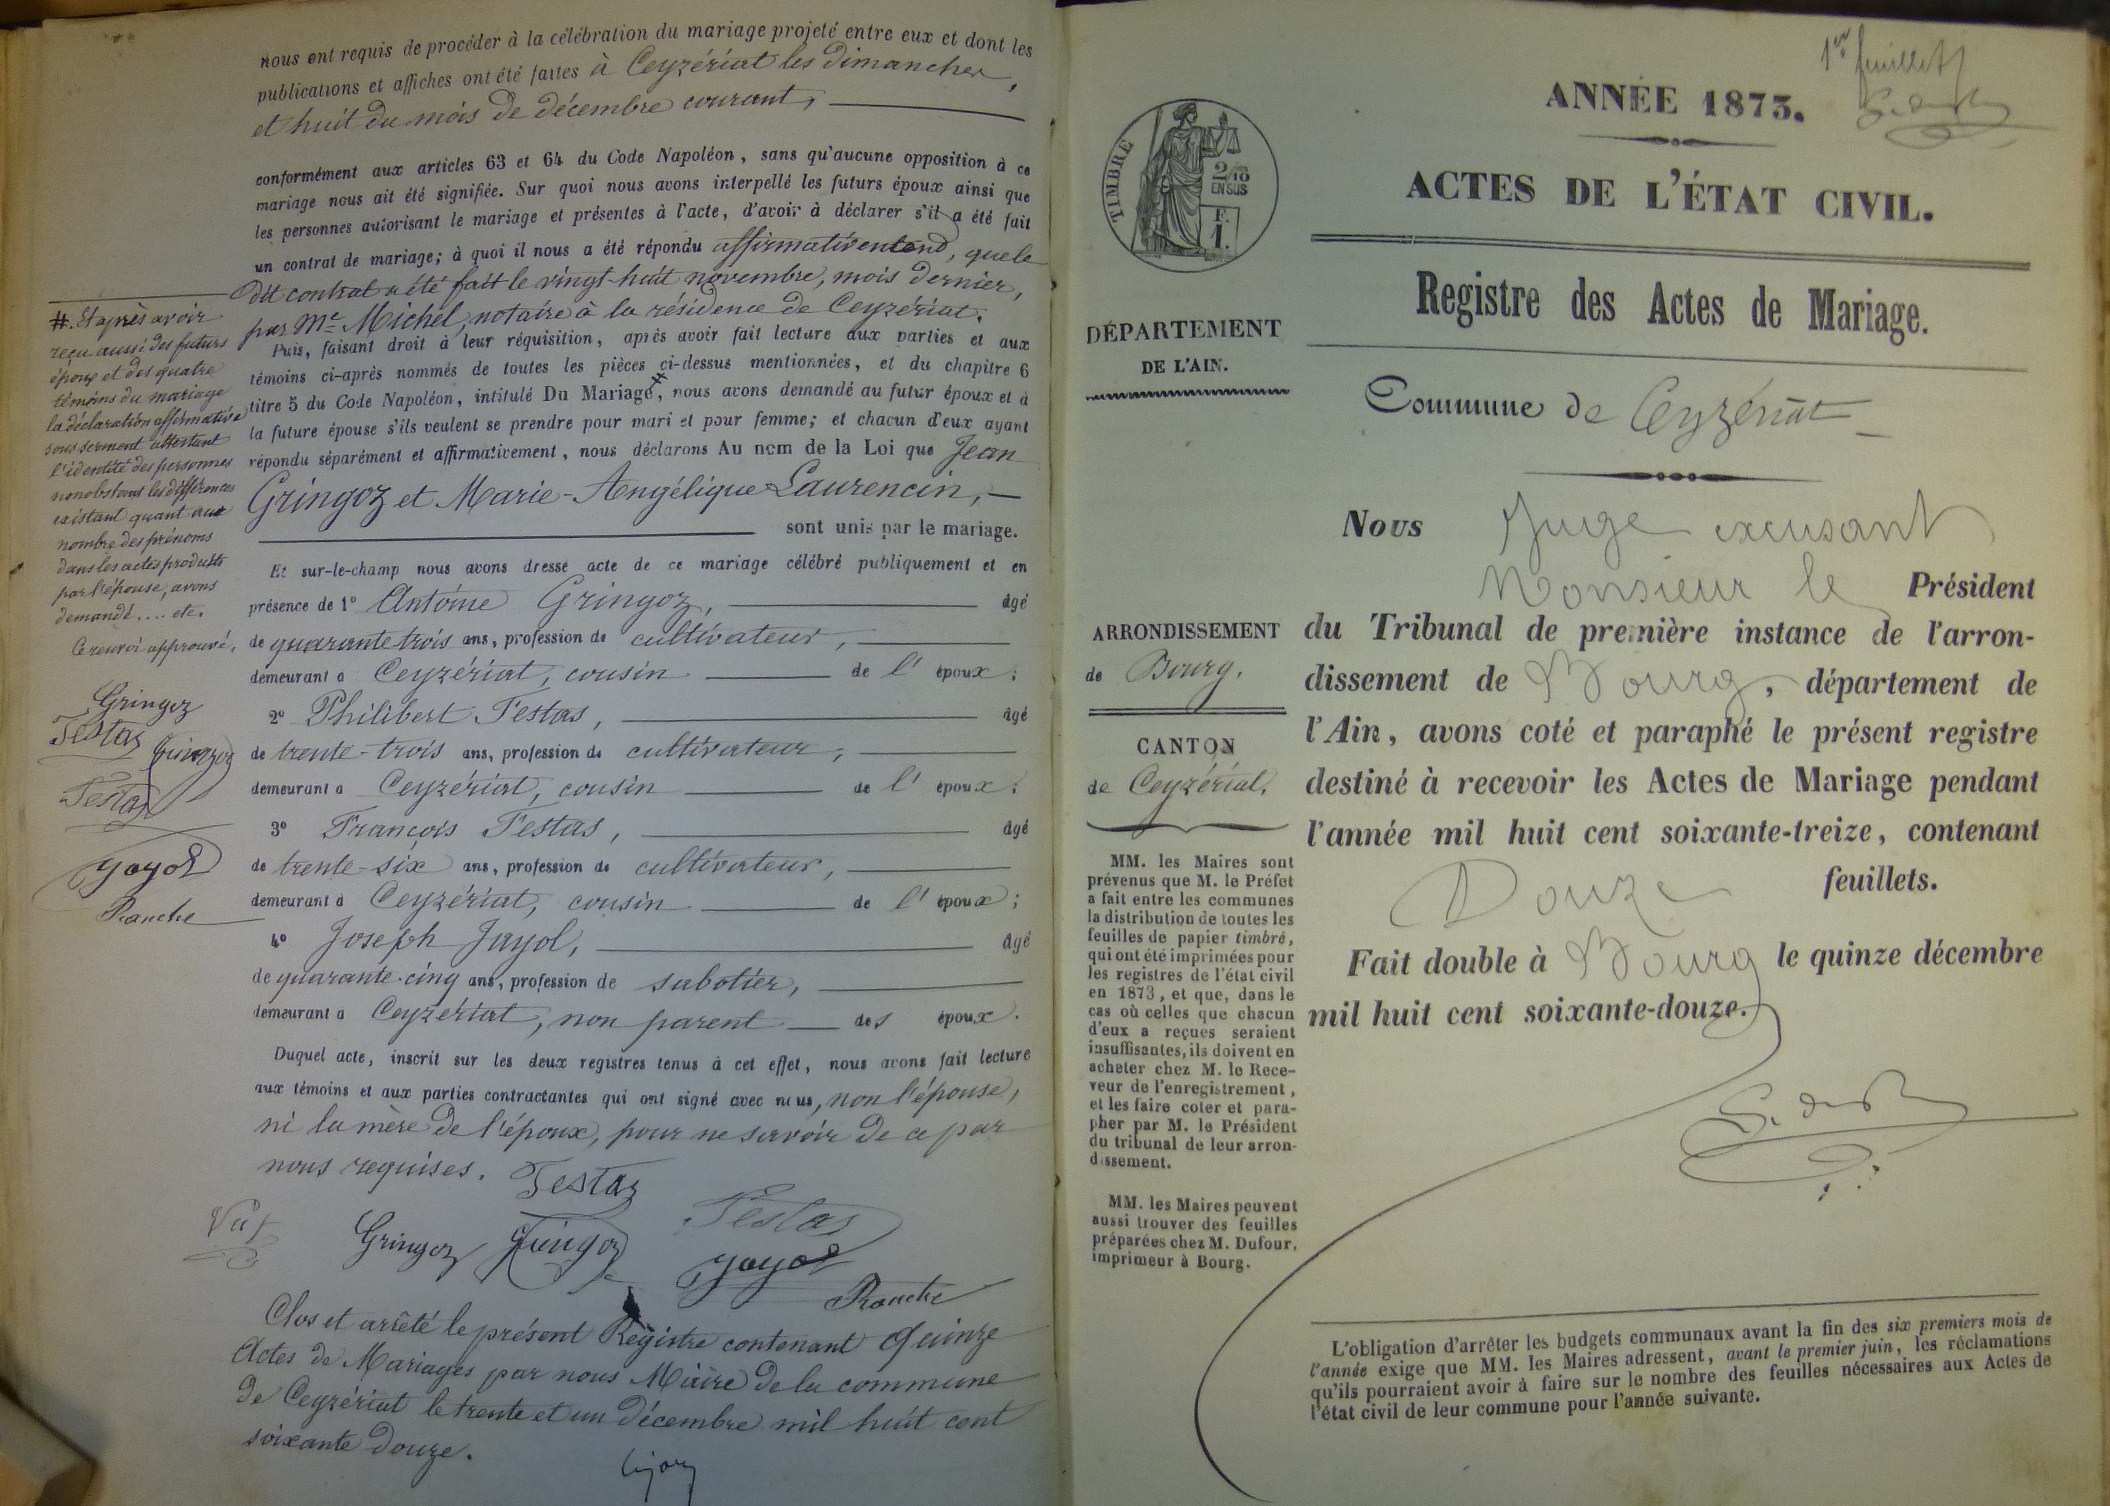 nous ont requis de procéder à la célébration du mariage projeté entre eux et dont les
publications et affiches ont été faites à Ceyzériat les dimanches,
et huit du mois de décembre courant,
conformément aux articles 63 et 64 du Code Napoléon, sans qu'aucune opposition à ce
mariage nous ait été signifiée. Sur quoi nous avons interpellé les futurs époux ainsi que
les personnes autorisant le mariage et présentes à l'acte, d'avoir à déclarer s'il a été fait
un contrat de mariage; à quoi il nous a été répondu affirmativement, que le
dit contrat a été fait le vingt-huit novembre, mois dernier,
par Me Michel, notaire à la résidence de Ceyzériat.
Puis, faisant droit à leur réquisition, après avoir fait lecture aux parties et aux
témoins ci-après nommés de toutes les pièces ci-dessus mentionnées, et du chapitre 6
titre 5 du Code Napoléon, intitulé Du Mariage #, nous avons demandé au futur époux et à
la future épouse s'ils veulent se prendre pour mari et pour femme; et chacun d'eux ayant
répondu séparément et affirmativement, nous déclarons Au nom de la Loi que Jean
Gringoz et Marie-Angélique Laurencin,
sont unis par le mariage.
Et sur-le-champ nous avons dressé acte de ce mariage célébré publiquement et en
présence de 1° Antoine Gringoz, âgé
de quarante trois ans, profession de cultivateur,
demeurant à Ceyzériat, cousin de l'époux;
2° Philibert Testas, âgé
de trente-trois ans, profession de cultivateur,
demeurant à Ceyzériat, cousin de l'époux;
3° François Testas, âgé
de trente-six ans, profession de cultivateur,
demeurant à Ceyzériat, cousin de l'époux;
4° Joseph Jayol, âgé
de quarante-cinq ans, profession de sabotier,
demeurant à Ceyzériat, non parent des époux.
Duquel acte, inscrit sur les deux registres tenus à cet effet, nous avons fait lecture
aux témoins et aux parties contractantes qui ont signé avec nous, non l'épouse,
ni la mère de l'époux, pour ne savoir de ce par
nous requises. Testas
Vu
Gringoz Gringoz Testas
Jayol
Ranche
Clos et arrêté le présent Registre contenant quinze
Actes de Mariages par nous Maire de la commune
de Ceyzériat le trente et un décembre mil huit cent
soixante douze.
#. Et après avoir
reçu aussi des futurs
époux et des quatre
témoins du mariage
la déclaration affirmative
sous serment attestant
l'identité des personnes
nonobstant les différences
existant quant au
nombre des prénoms
dans les actes produits
par l'épouse, avons
demandé .... etc.
Ce renvoi approuvé.
Gringoz
Testas Gringoz
Testas
Jayol
Ranche
1er feuillet
ANNÉE 1873.
ACTES DE L'ÉTAT CIVIL.
Registre des Actes de Mariage.
Commune de Ceyzériat
TIMBRE
2/10
EN SUS
F.
1.
DÉPARTEMENT
DE L'AIN.
ARRONDISSEMENT
de Bourg.
CANTON
de Ceyzériat.
MM. les Maires sont
prévenus que M. le Préfet
a fait entre les communes
la distribution de toutes les
feuilles de papier timbré,
qui ont été imprimées pour
les registres de l'état civil
en 1873, et que, dans le
cas où celles que chacun
d'eux a reçues seraient
insuffisantes, ils doivent en
acheter chez M. le Rece-
veur de l'enregistrement,
et les faire coter et para-
pher par M. le Président
du tribunal de leur arron-
dissement.
MM. les Maires peuvent
aussi trouver des feuilles
préparées chez M. Dufour,
imprimeur à Bourg.
Nous Juge excusant
Monsieur le Président
du Tribunal de première instance de l'arron-
dissement de Bourg, département de
l'Ain, avons coté et paraphé le présent registre
destiné à recevoir les Actes de Mariage pendant
l'année mil huit cent soixante-treize, contenant
Douze feuillets.
Fait double à Bourg le quinze décembre
mil huit cent soixante-douze.
L'obligation d'arrêter les budgets communaux avant la fin des six premiers mois de
l'année exige que MM. les Maires adressent, avant le premier juin, les réclamations
qu'ils pourraient avoir à faire sur le nombre des feuilles nécessaires aux Actes de
l'état civil de leur commune pour l'année suivante.